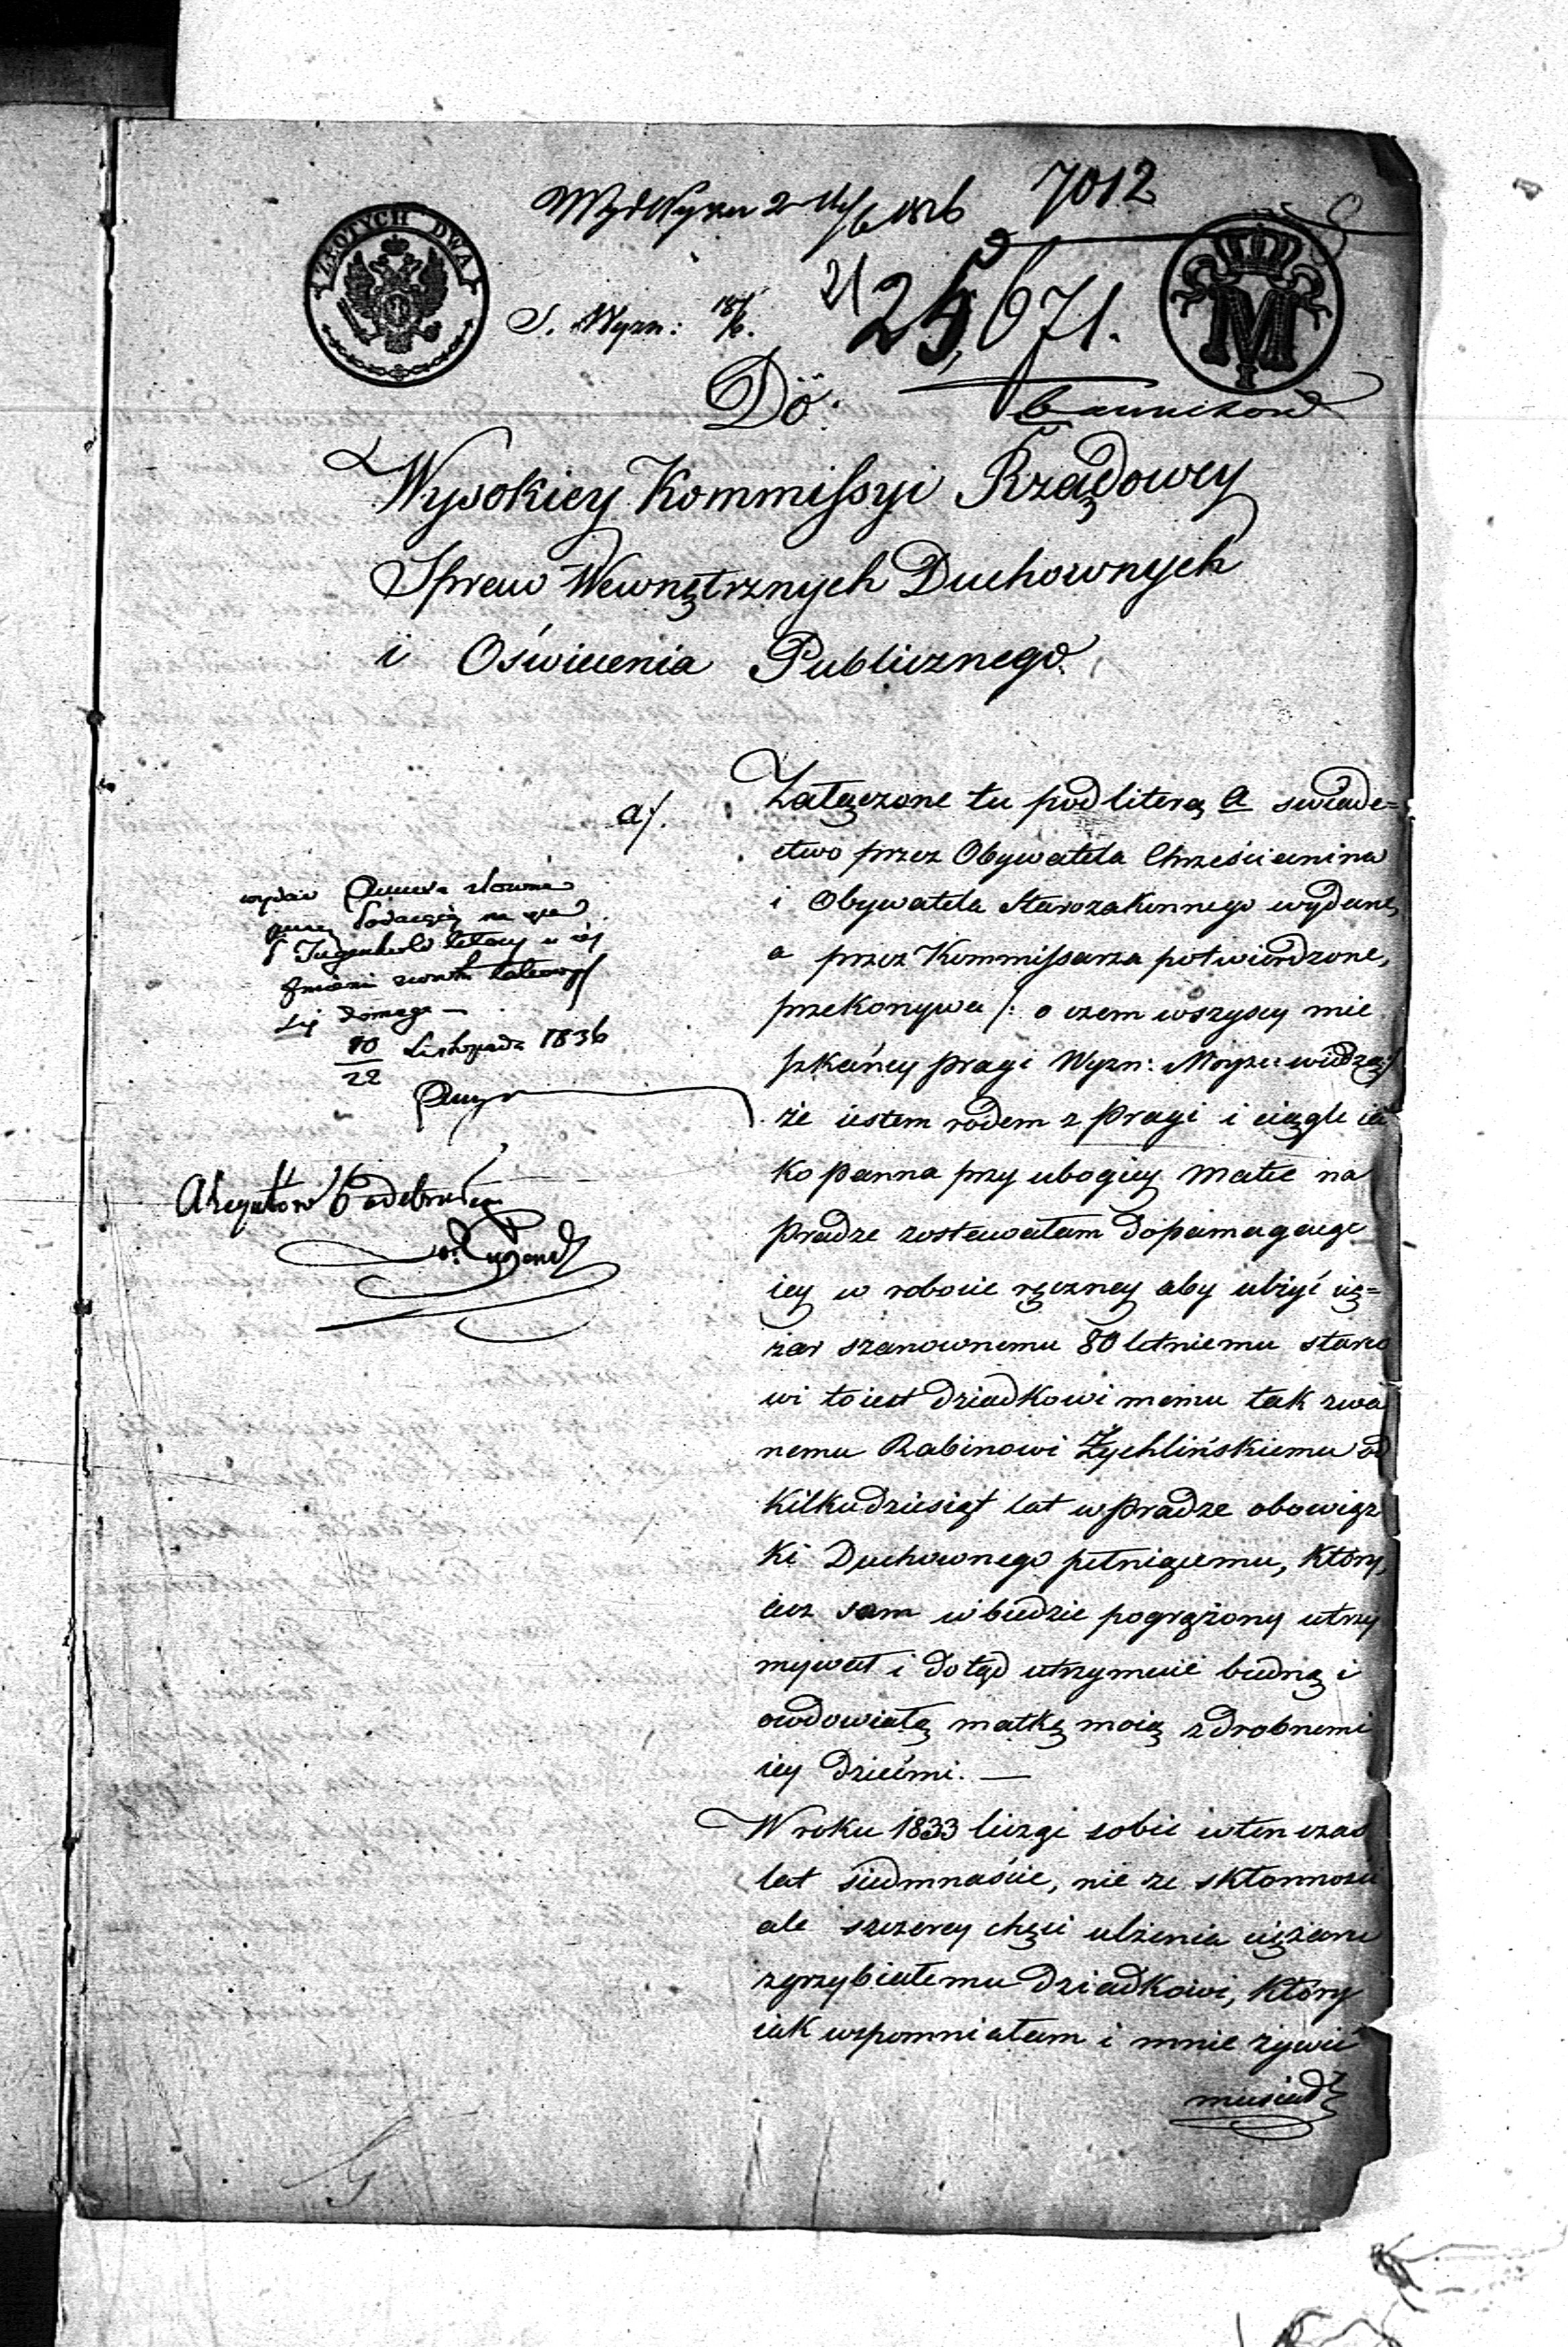 7012
ZŁOTYCH DWA
S. Wyzn:
21
25,671.
M
I
Do:
Wysokiey Kommissyi Rządowey
Spraw Wewnętrznych Duchownych
i Oświecenia Publicznego.
a/. Załączone tu pod literą a swiade=
ctwo przez Obywatela Chrześcianina
i Obywatela Starozakonnego wydane,
a przez Kommissarza potwierdzone,
przekonywa /: o czem wszyscy mie
szkańcy Pragi Wyzn: Moyże: wiedzą :/
że iestem rodem z Pragi i ciągle ia
ko panna przy ubogiey matce na
Pradze zostawałam dopamagaiąc
iey w robocie ręczney aby ulżyć cię=
żar szanownemu 80 letniemu starco
wi to iest dziadkowi memu tak zwa
nemu Rabinowi Żychlińskiemu od
kilkudziesiąt lat w Pradze obowiąz
ki Duchownego pełniącemu, który,
acz sam w biedzie pogrążony utrzy
mywał i dotąd utrzymuie biedną i
owdowiałą matkę moią z drobnemi
iey dziećmi. —
W roku 1833 licząc sobie wtenczas
lat siedmnaście, nie ze skłonności
ale szczerey chęci ulżenia ciężaru
zgrzybiałemu dziadkowi, który
iak wspomniałam i mnie żywić
musiał
wydać
się domaga —
10/22 Listopada 1836
odebrałem